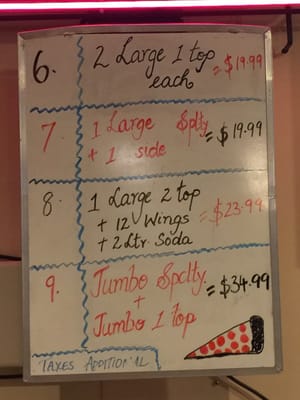 6. 2 Large 1 top = $19.99
each
7. 1 Large Splty = $19.99
+ 1 side
8. 1 Large 2 top
+ 12 Wings = $23.99
+ 2 Ltr. Soda
9. Jumbo Spclty. = $34.99
+
Jumbo 1 top
TAXES ADDITION'AL